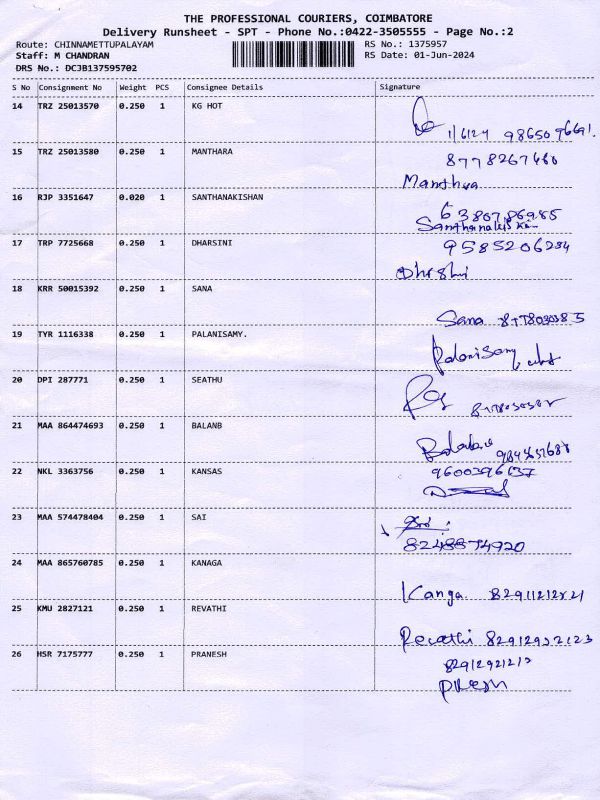 THE PROFESSIONAL COURIERS, COIMBATORE
Delivery Runsheet - SPT - Phone No.:0422-3505555 - Page No.:2
Route: CHINNAMETTUPALAYAM RS No.: 1375957
Staff: M CHANDRAN RS Date: 01-Jun-2024
DRS No.: DCJB137595702
S No Consignment No Weight PCS Consignee Details Signature
14 TRZ 25013570 0.250 1 KG HOT
1/6124 9865096691.
15 TRZ 25013580 0.250 1 MANTHARA
8778267460
Manthra
16 RJP 3351647 0.020 1 SANTHANAKISHAN
6380786985
17 TRP 7725668 0.250 1 DHARSINI
9585206284
18 KRR 50015392 0.250 1 SANA
Sana
19 TYR 1116338 0.250 1 PALANISAMY.
Palanisamy
20 DPI 287771 0.250 1 SEATHU
21 MAA 864474693 0.250 1 BALANB
22 NKL 3363756 0.250 1 KANSAS
9600396637
23 MAA 574478404 0.250 1 SAI
8248874920
24 MAA 865760785 0.250 1 KANAGA
Kanga.
25 KMU 2827121 0.250 1 REVATHI
Revathi
26 HSR 7175777 0.250 1 PRANESH